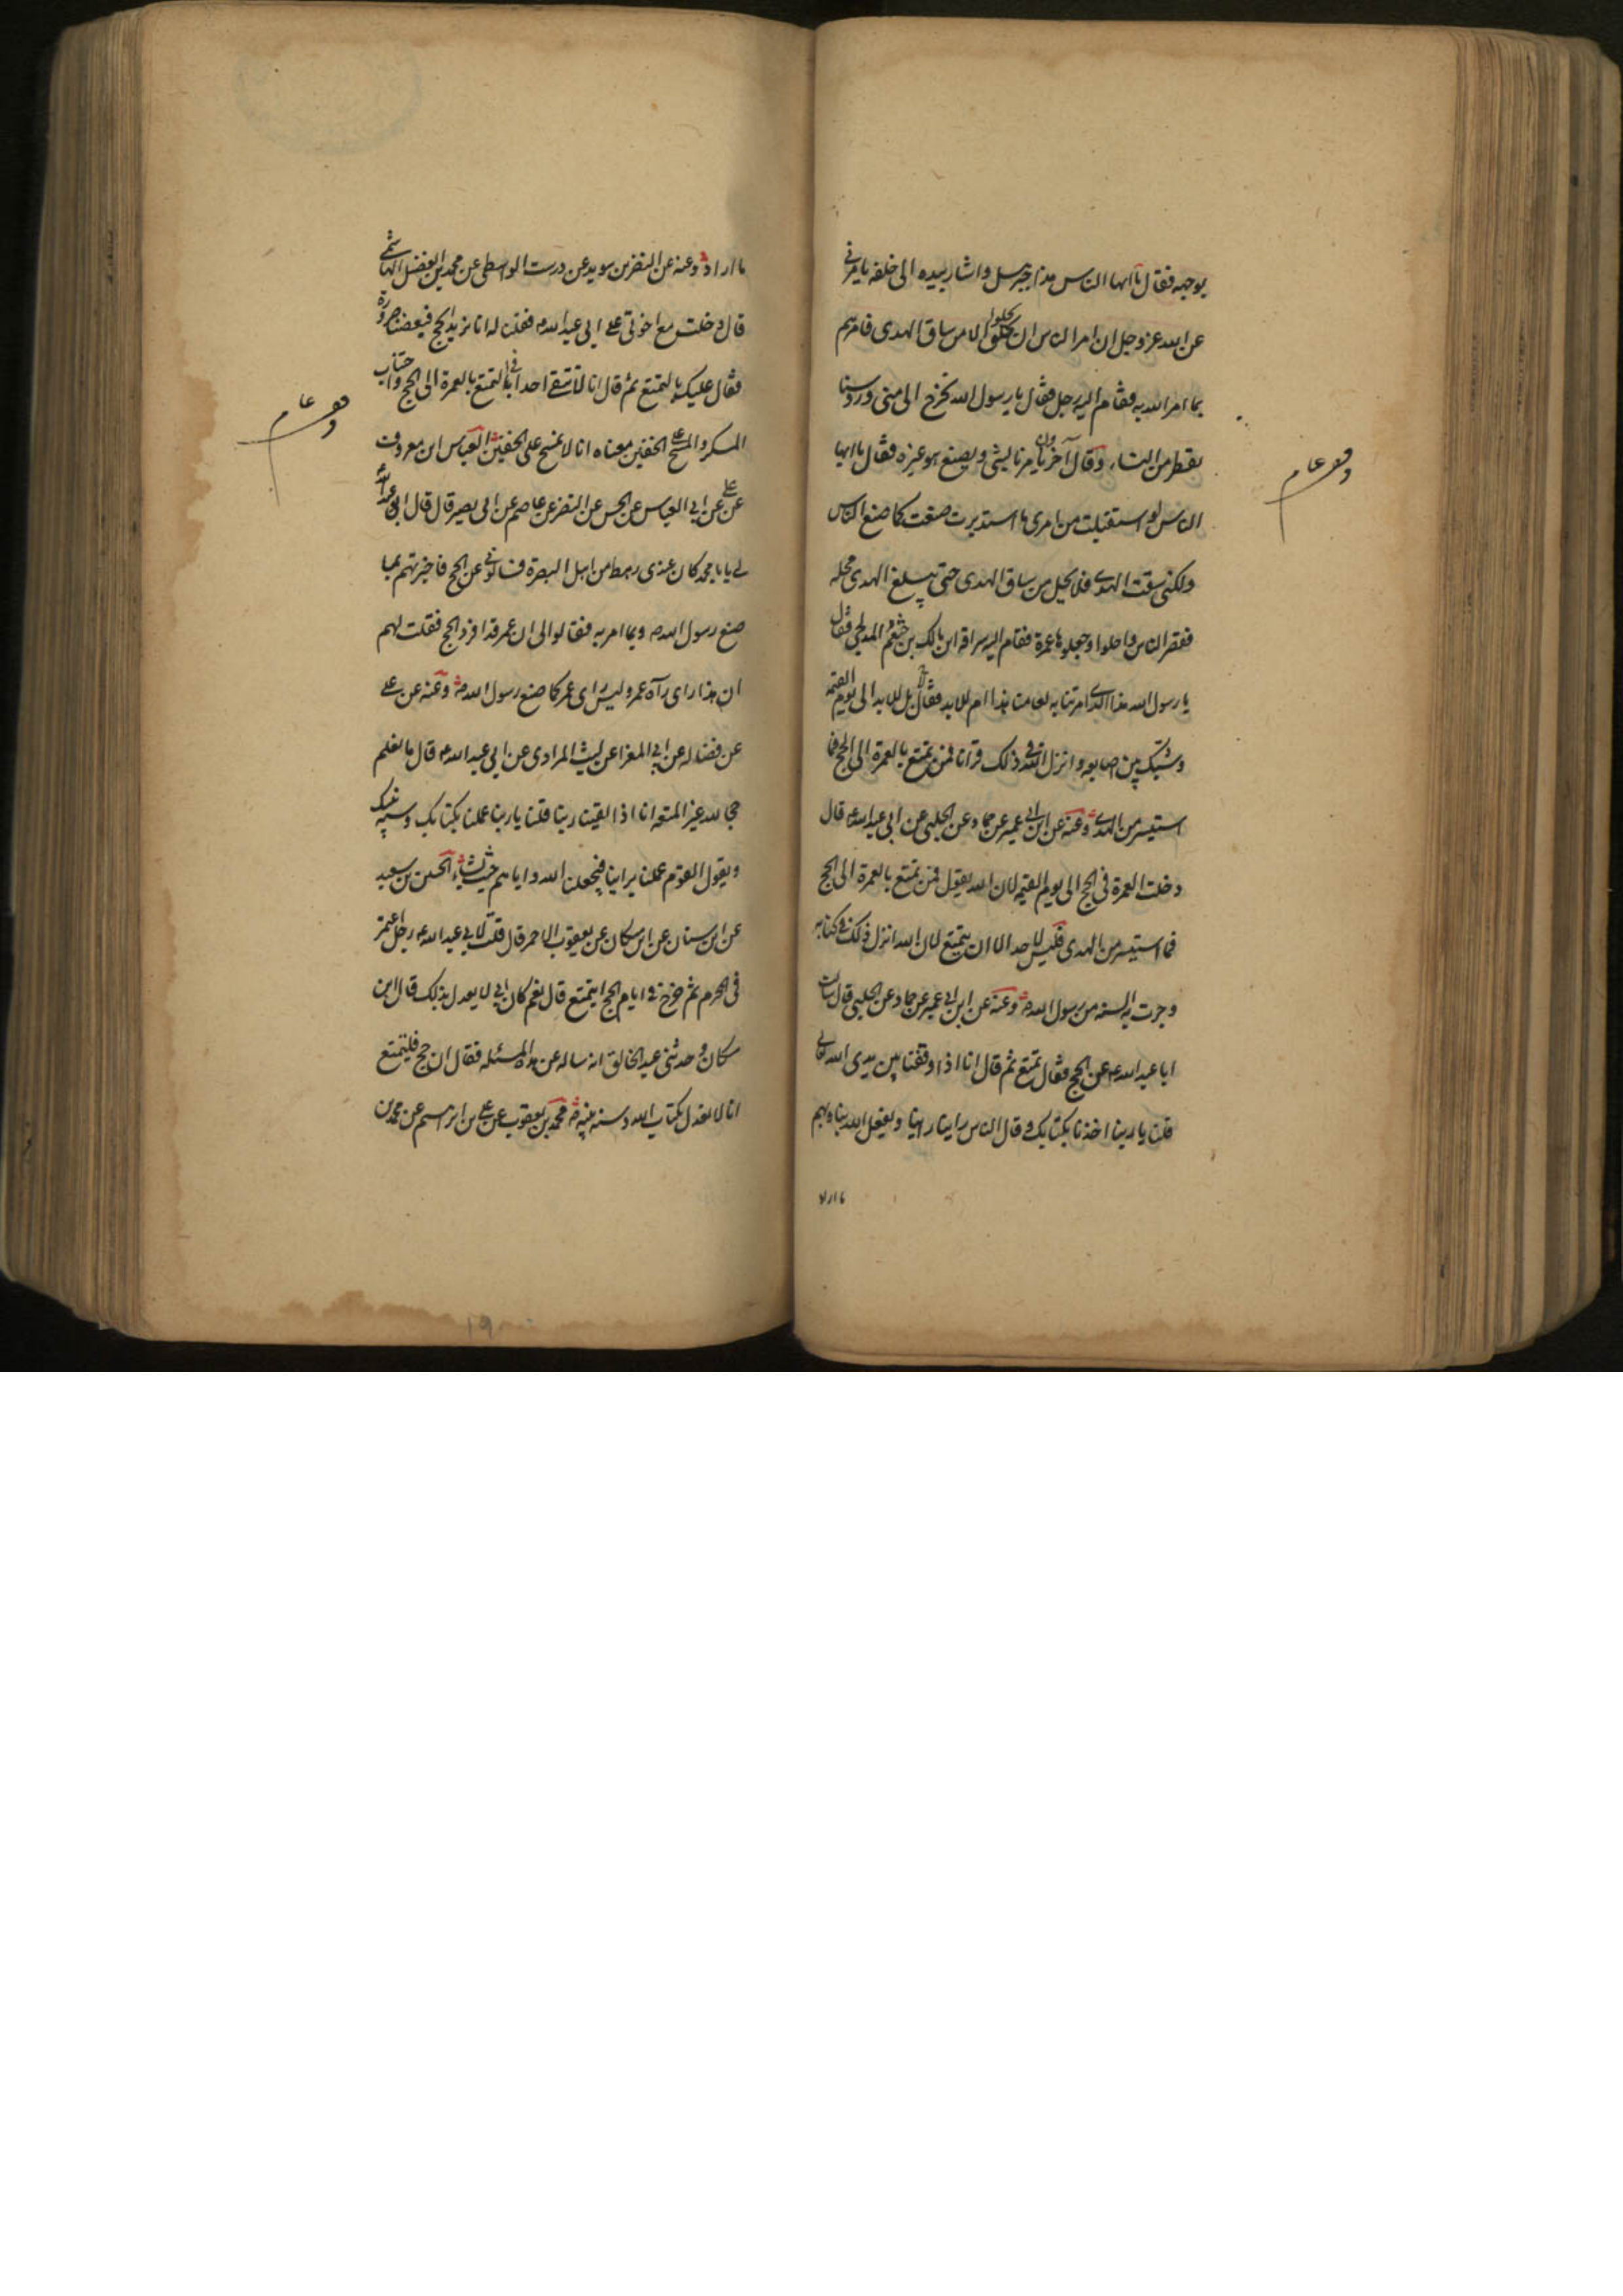 بوجهه فقال یا ایها الناس هذا جبرئیل واشار بیده الی خلفه یامرنی
عن الله عز وجل ان امر الناس ان یحلوا الا من ساق الهدی فامرهم
بما امر الله به فقام الیه رجل فقال یا رسول الله نخرج الی منی ورؤسنا
تقطر من النساء وقال آخرون یامرنا بشی ویصنع هو غیره فقال یا ایها
الناس لو استقبلت من امری ما استدبرت صنعت کما صنع الناس
ولکنی سقت الهدی فلا یحل من ساق الهدی حتی یبلغ الهدی محله
فقصر الناس واحلوا وجعلوها عمرة فقام الیه سراقة ابن مالک بن جشعم المدلجی فقال
یا رسول الله هذا الذی امرتنا به لعامنا هذا ام للابد فقال لا بل للابد الی یوم القیمة
وشبک بین اصابعه وانزل الله فی ذلک قرانا فمن تمتع بالعمرة الی الحج فما
استیسر من الهدی وعنه عن ابن ابی عمیر عن حماد عن الحلبی عن ابی عبد الله ع قال
دخلت العمرة فی الحج الی یوم القیمه لان الله یقول فمن تمتع بالعمرة الی الحج
فما استیسر من الهدی فلیس لاحد الا ان یتمتع لان الله انزل ذلک فی کتابه
وجرت به السنه من رسول الله ص وعنه عن ابن ابی عمیر عن حماد عن الحلبی قال سالت
ابا عبد الله ع عن الحج فقال تمتع ثم قال انا اذا وقفنا بین یدی الله تعالی
قلنا یا ربنا اخذنا بکتابک وقال الناس راینا راینا ویفعل الله بنا وبهم
ما اراد
وقف عام
ما اراد وعنه عن النضر بن سوید عن درست الواسطی عن محمد بن الفضل الهاشمی
قال دخلت مع اخوتی علی ابی عبد الله ع فقلنا له انا نرید الحج فبعضنا صرورة
فقال علیک بالتمتع ثم قال انا لا نتقی احدا فی التمتع بالعمرة الی الحج واجتناب
المسکر والمسح علی الخفین معناه انا لا نمسح علی الخفین العباس ابن معروف
عن علی عن ابی العباس عن الحسن عن النضر عن عاصم عن ابی بصیر قال قال ابو عبد الله
لی یا با محمد کان عندی رهط من اهل البصرة فسالونی عن الحج فاخبرتهم بما
صنع رسول الله ص وبما امر به فقالوا لی ان عمر قد افرد الحج فقلت لهم
ان هذا رای رآه عمر ولیس رای عمر کما صنع رسول الله ص وعنه عن علی
عن فضاله عن ابی المغرا عن لیث المرادی عن ابی عبد الله ع قال ما نعلم
حجا لله غیر المتعه انا اذا لقینا ربنا قلنا یا ربنا عملنا بکتابک وسنة نبیک
ویقول القوم عملنا براینا فیجعلنا الله وایاهم حیث یشاء الحسین بن سعید
عن ابن سنان عن ابن مسکان عن یعقوب الاحمر قال قلت لابی عبد الله ع رجل اعتمر
فی المحرم ثم خرج فی ایام الحج ایتمتع قال نعم کان ابی لا یعدل بذلک قال ابن
مسکان وحدثنی عبد الخالق انه ساله عن هذه المسئله فقال ان حج فلیتمتع
انا لا نعدل بکتاب الله وسنه نبیه ص محمد بن یعقوب عن علی بن ابرهیم عن محمد بن
وقف عام
۱۹